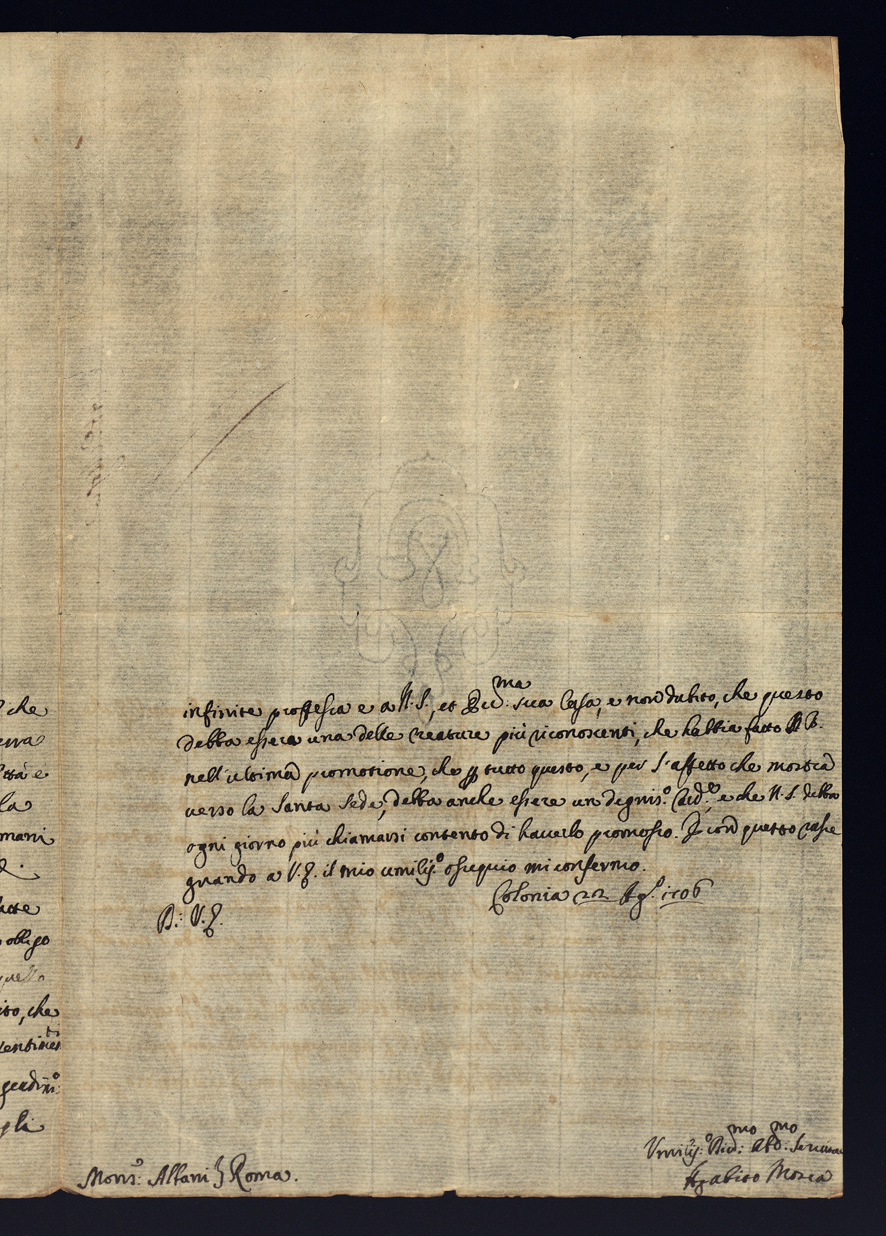 che
erra
ttà è
la
mani
atte
obligo
quello
ito, che
sentimenti
gli
infinite professia e a N. S., et Ecc:ma sua Casa, e non dubito, che questo
debba essere una delle creature più riconoscenti, che habbia fatto N. S.
nell'ultima promotione, che tutto questo, e per l'affetto che mostra
verso la Santa Sede, debba anche essere un degnis:o e che N. S. debba
ogni giorno più chiamarsi contento di haverlo promosso. E con questo rasse
gnando a V. E. il mio umilis:o ossequio mi confermo.
Colonia 22 Ag.° 1706
D: V. E.
Mons:r Albani Roma.
Umilis:o Div:mo Obb:mo Servitore
Agabito Mosca